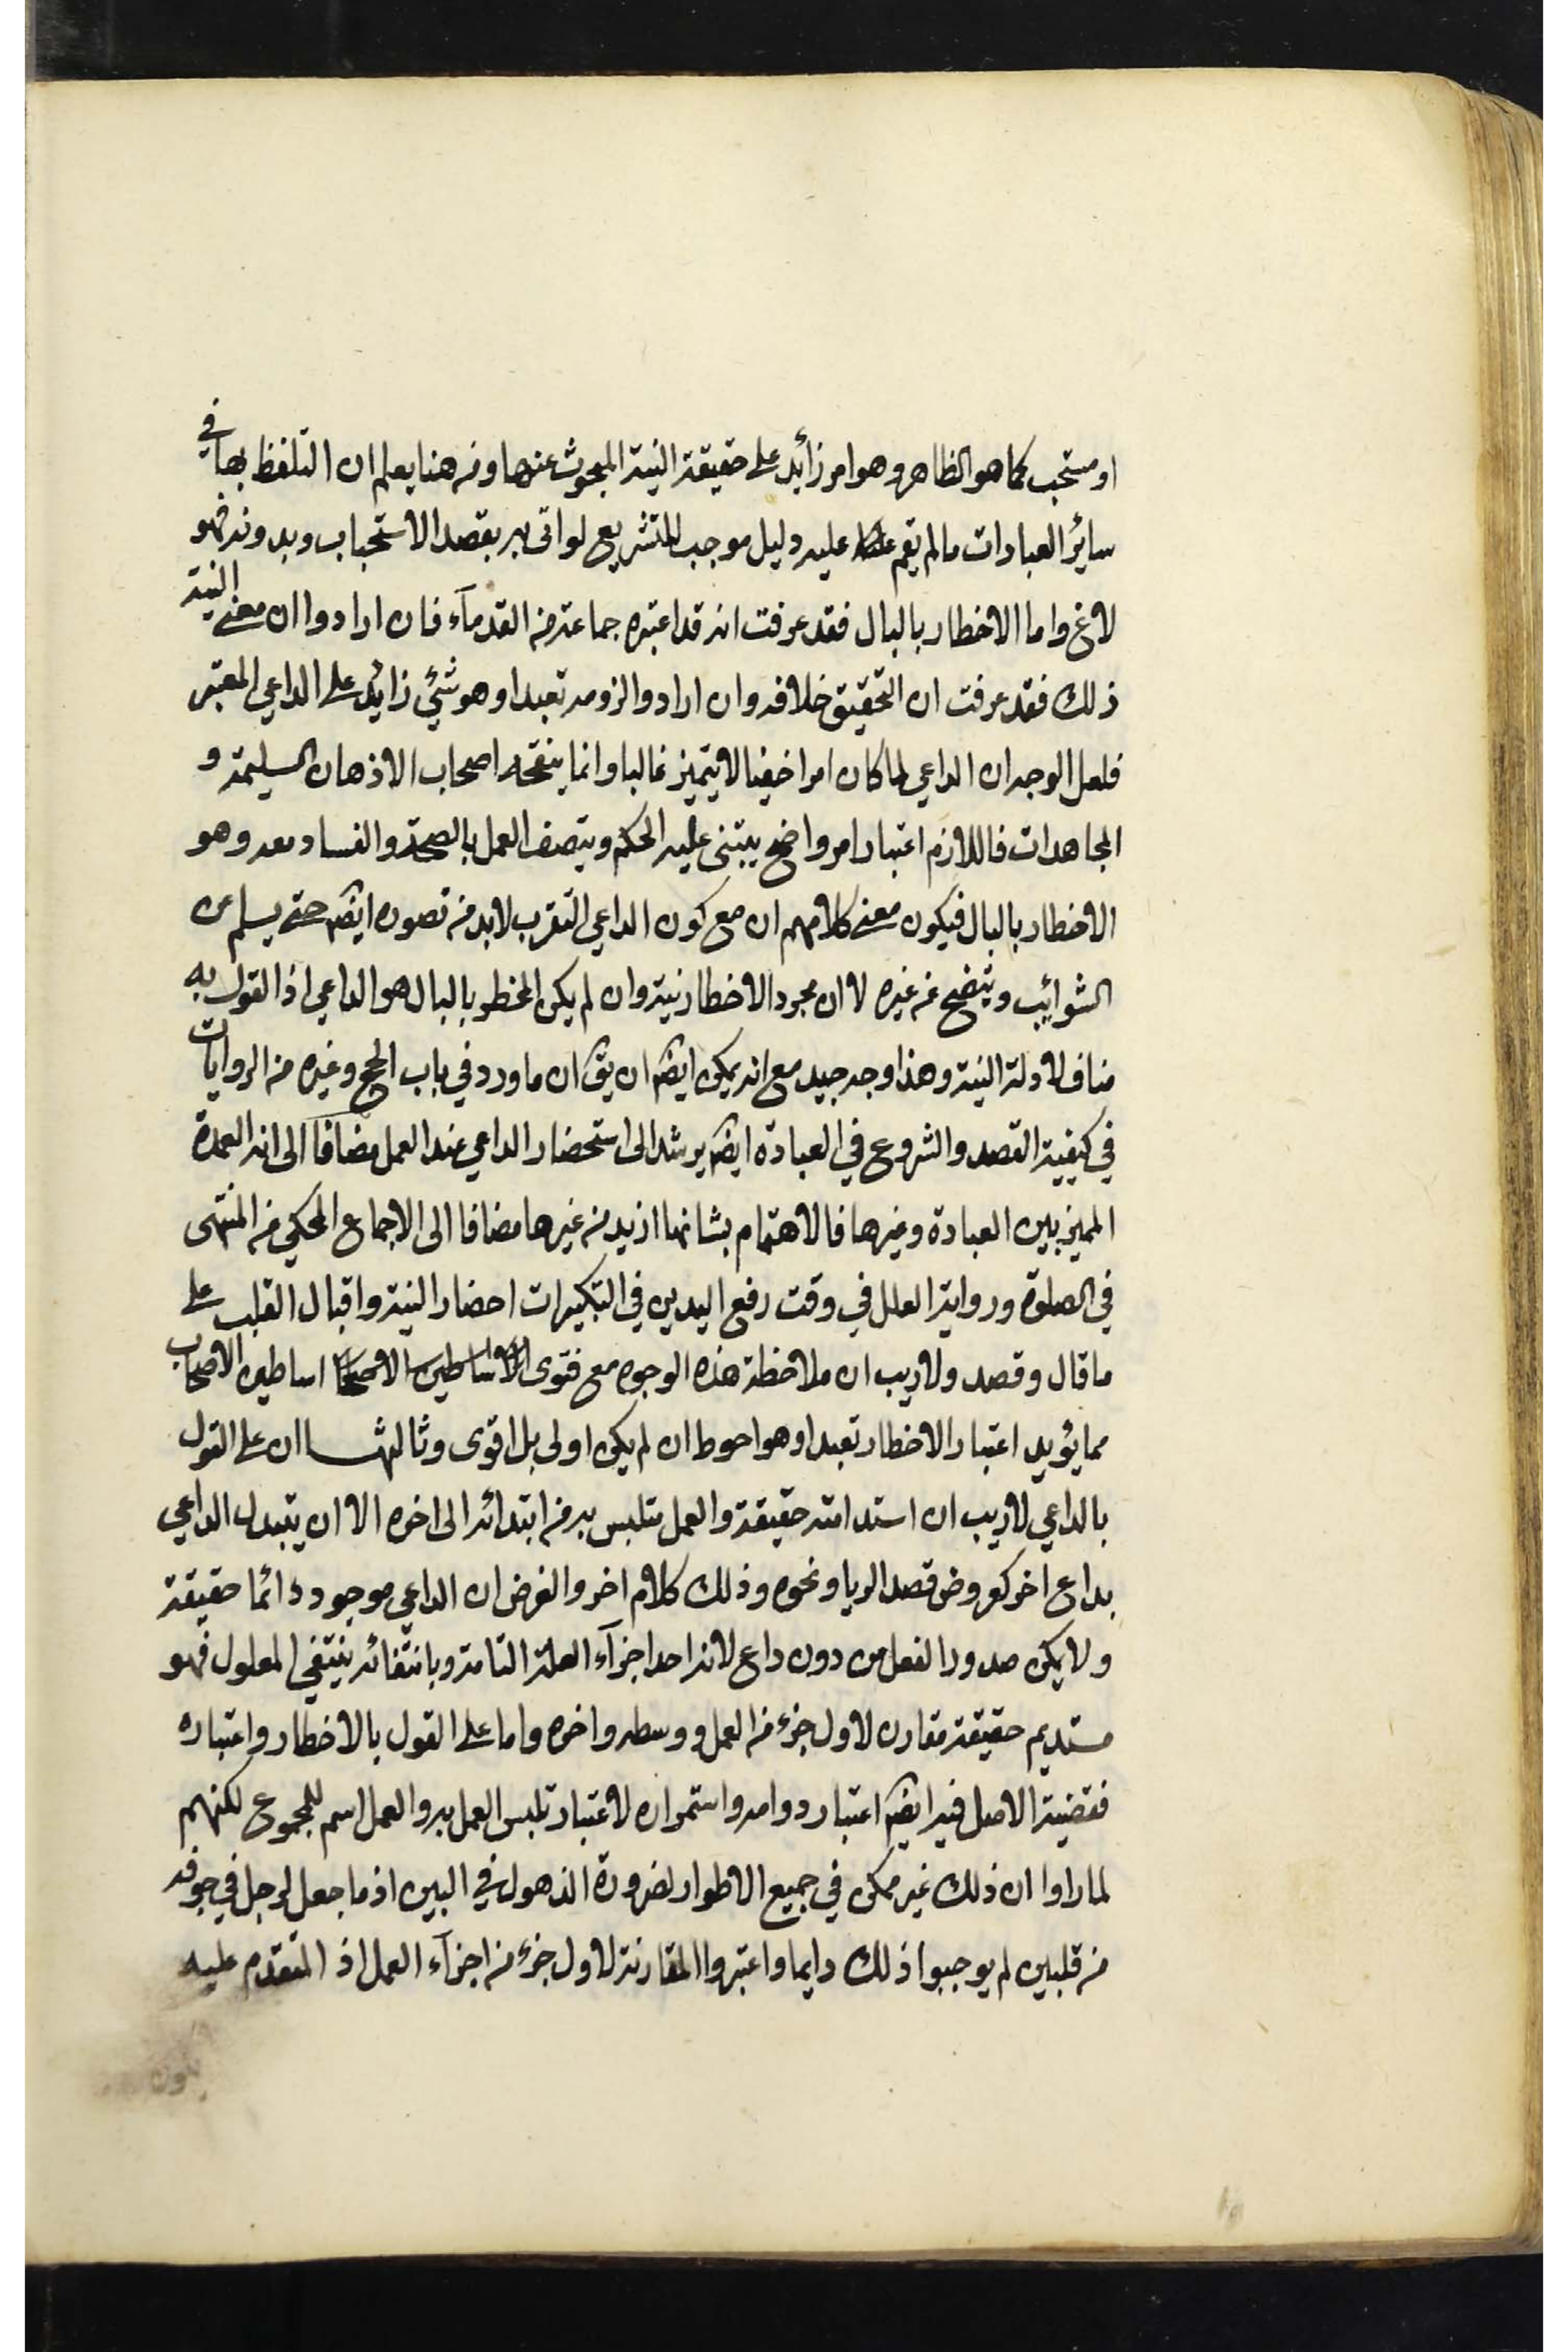 او مستحب كما هو الظاهر وهو امر زائد على حقيقة النية المبحوث عنها ومن هنا يعلم ان التلفظ بها في
سائر العبادات ما لم يقم عليه دليل موجب للتشريع لو اتى به بقصد الاستحباب وبدونه فهو
لاغ واما الاخطار بالبال فقد عرفت انه قد اعتبره جماعة من القدمآء فان ارادوا ان معنى النية
ذلك فقد عرفت ان التحقيق خلافه وان ارادوا لزومه تعبدا وهو شئ زائد على الداعي المعتبر
فلعل الوجه ان الداعي لما كان امرا خفيا لا يتميز غالبا وانما ينقحه اصحاب الاذهان السليمة و
المجاهدات فاللازم اعتبار امر واضح يبتنى عليه الحكم ويتصف العمل بالصحة والفساد معه وهو
الاخطار بالبال فيكون معنى كلامهم ان مع كون الداعي التقرب لابد من تصوره ايضا حتى يسلم عن
الشوائب ويتضح عن غيره لا ان مجرد الاخطار نية وان لم يكن المخطر بالبال هو الداعي اذ القول به
مناف لادلة النية وهذا وجه جيد مع انه يمكن ايضا ان يق ان ما ورد في باب الحج وغيره من الروايات
في كيفية القصد والشروع في العبادة ايضا يرشد الى استحضار الداعي عند العمل مضافا الى انه العمدة
المميز بين العبادة وغيرها فالاهتمام بشانها ازيد من غيرها مضافا الى الاجماع المحكي من المنتهى
في الصلوة ورواية العلل في وقت رفع اليدين في التكبيرات احضار النية واقبال القلب على
ما قال وقصد ولا ريب ان ملاحظة هذه الوجوه مع فتوى اساطين الاصحاب
مما يؤيد اعتبار الاخطار تعبدا وهو احوط ان لم يكن اولى بل اقوى وثالثها ان على القول
بالداعي لا ريب ان استدامته حقيقة والعمل متلبس به من ابتدائه الى اخره الا ان يتبدل الداعي
بداع اخر كعروض قصد الريا ونحوه وذلك كلام اخر والغرض ان الداعي موجود دائما حقيقة
ولا يمكن صدور الفعل من دون داع لانه احد اجزآء العلة التامة وبانتفائه ينتفي المعلول فهو
مستديم حقيقة مقارن لاول جزء من العمل ووسطه واخره واما على القول بالاخطار واعتباره
فقضية الاصل فيه ايضا اعتبار دوامه واستمراره لاعتبار تلبس العمل به والعمل اسم للمجموع لكنهم
لما راوا ان ذلك غير ممكن في جميع الاطوار لضرورة الذهول في البين اذ ما جعل لرجل في جوفه
من قلبين لم يوجبوا ذلك دايما واعتبروا المقارنة لاول جزء من اجزآء العمل اذ المتقدم عليه